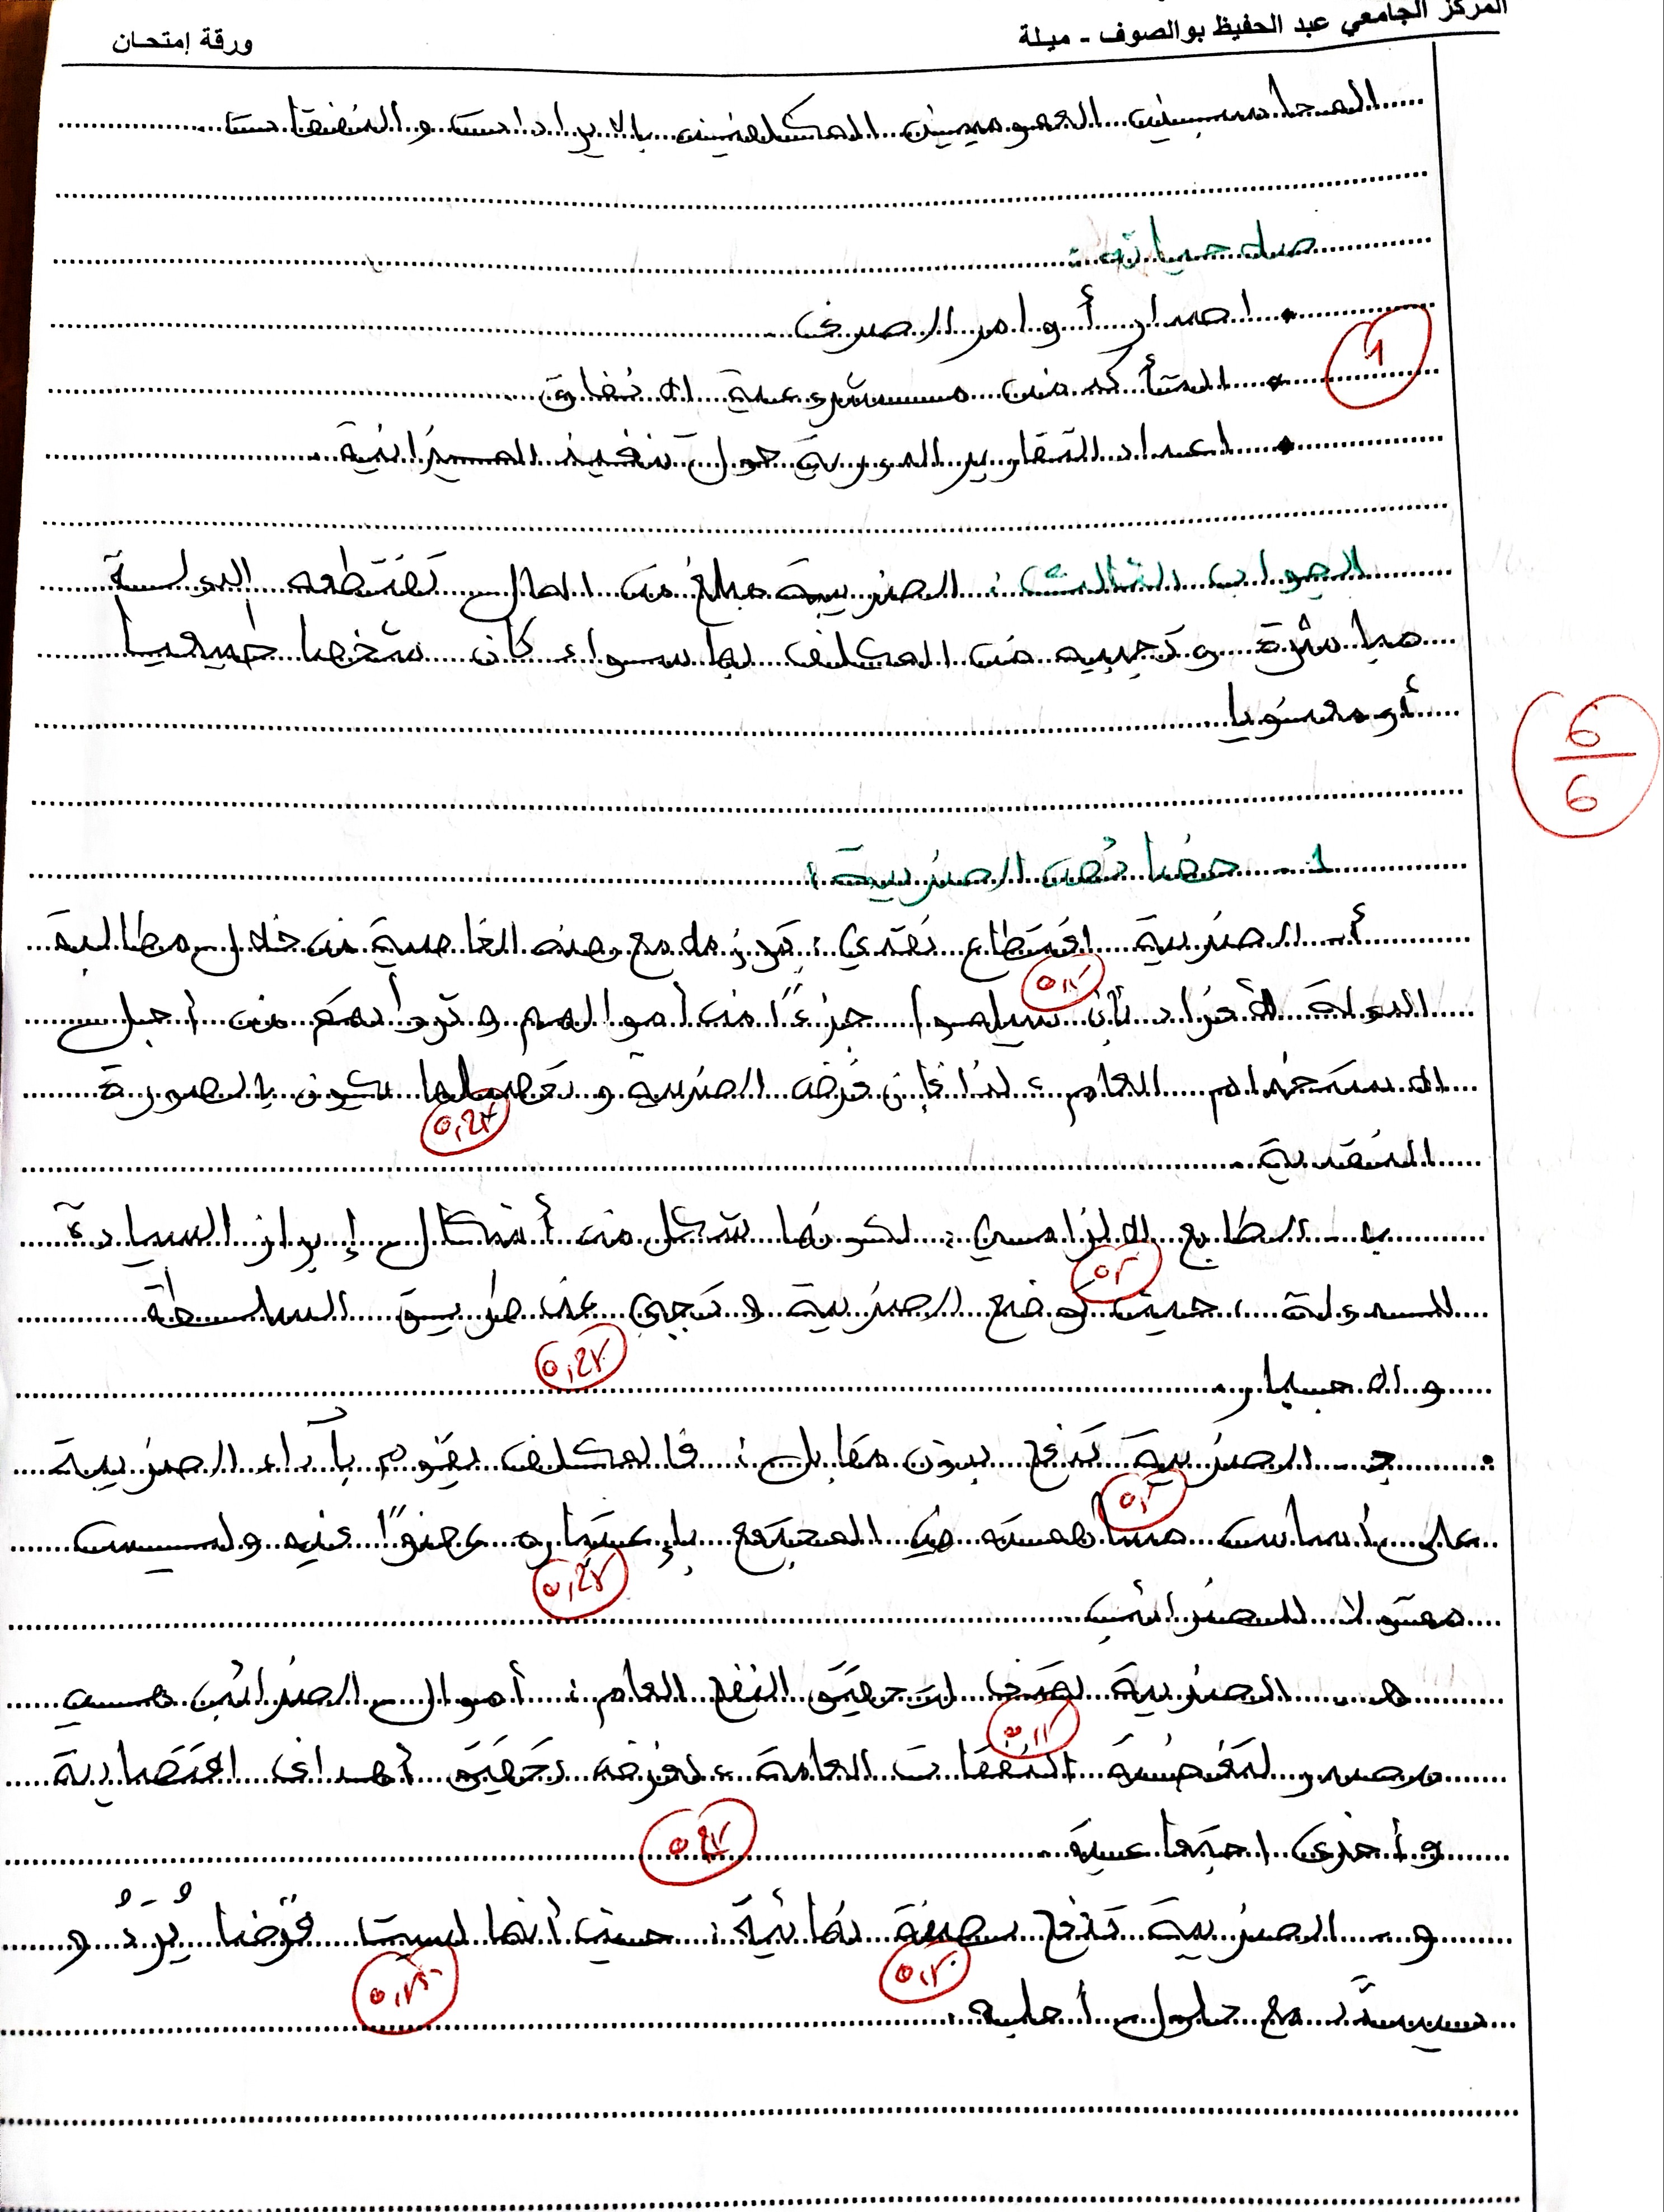 المركز الجامعي عبد الحفيظ بوالصوف - ميلة
ورقة إمتحان
المحاسبين العموميين المكلفين بالايرادات والنفقات
صلاحياته :
• اصدار أوامر الصرف
1
• التأكد من مشروعية الانفاق
• اعداد التقارير الدورية حول تنفيذ الميزانية.
الجواب الثالث : الضريبة مبلغ من المال تقتطعه الدولة
مباشرة وتجبيه من المكلف بها سواء كان شخصا طبيعيا
أو معنويا
6
6
1- خصائص الضريبة :
أ- الضريبة اقتطاع نقدي : تتلازم مع هذه الخاصية من خلال مطالبة
0,5
الدولة الأفراد بأن يسلموا جزءًا من أموالهم وثرواتهم من أجل
الاستخدام العام ، لذا فإن فرض الضريبة وتحصيلها يكون بالصورة
0,25
النقدية.
ب- الطابع الالزامي : لكونها شكل من أشكال إبراز السيادة
0,5
للدولة ، حيث توضع الضريبة وتجبى عن طريق السلطة
0,25
والاجبار.
ج- الضريبة تدفع بدون مقابل : فالمكلف يقوم بآداء الضريبة
0,5
على أساس مساهمته في المجتمع بإعتباره عضوًا فيه وليس
0,25
ممولا للضرائب
هـ- الضريبة تهدف لتحقيق النفع العام : أموال الضرائب هي
0,5
مصدر لتغطية النفقات العامة ، لغرض تحقيق أهداف اقتصادية
وأخرى اجتماعية.
0,25
و- الضريبة تدفع بصفة نهائية : حيث أنها ليست قرضا يُرَدُ و
0,5
0,25
سيسدَّد مع حلول أجله.